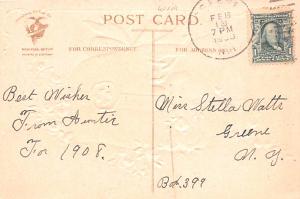 POST CARD.
FOR CORRESPONDENCE.
FOR ADDRESS ONLY.
FEB
7 PM
Best Wishes
From Hunter
For 1908.
Miss Stella Watts
Greene
N.Y.
Box 399